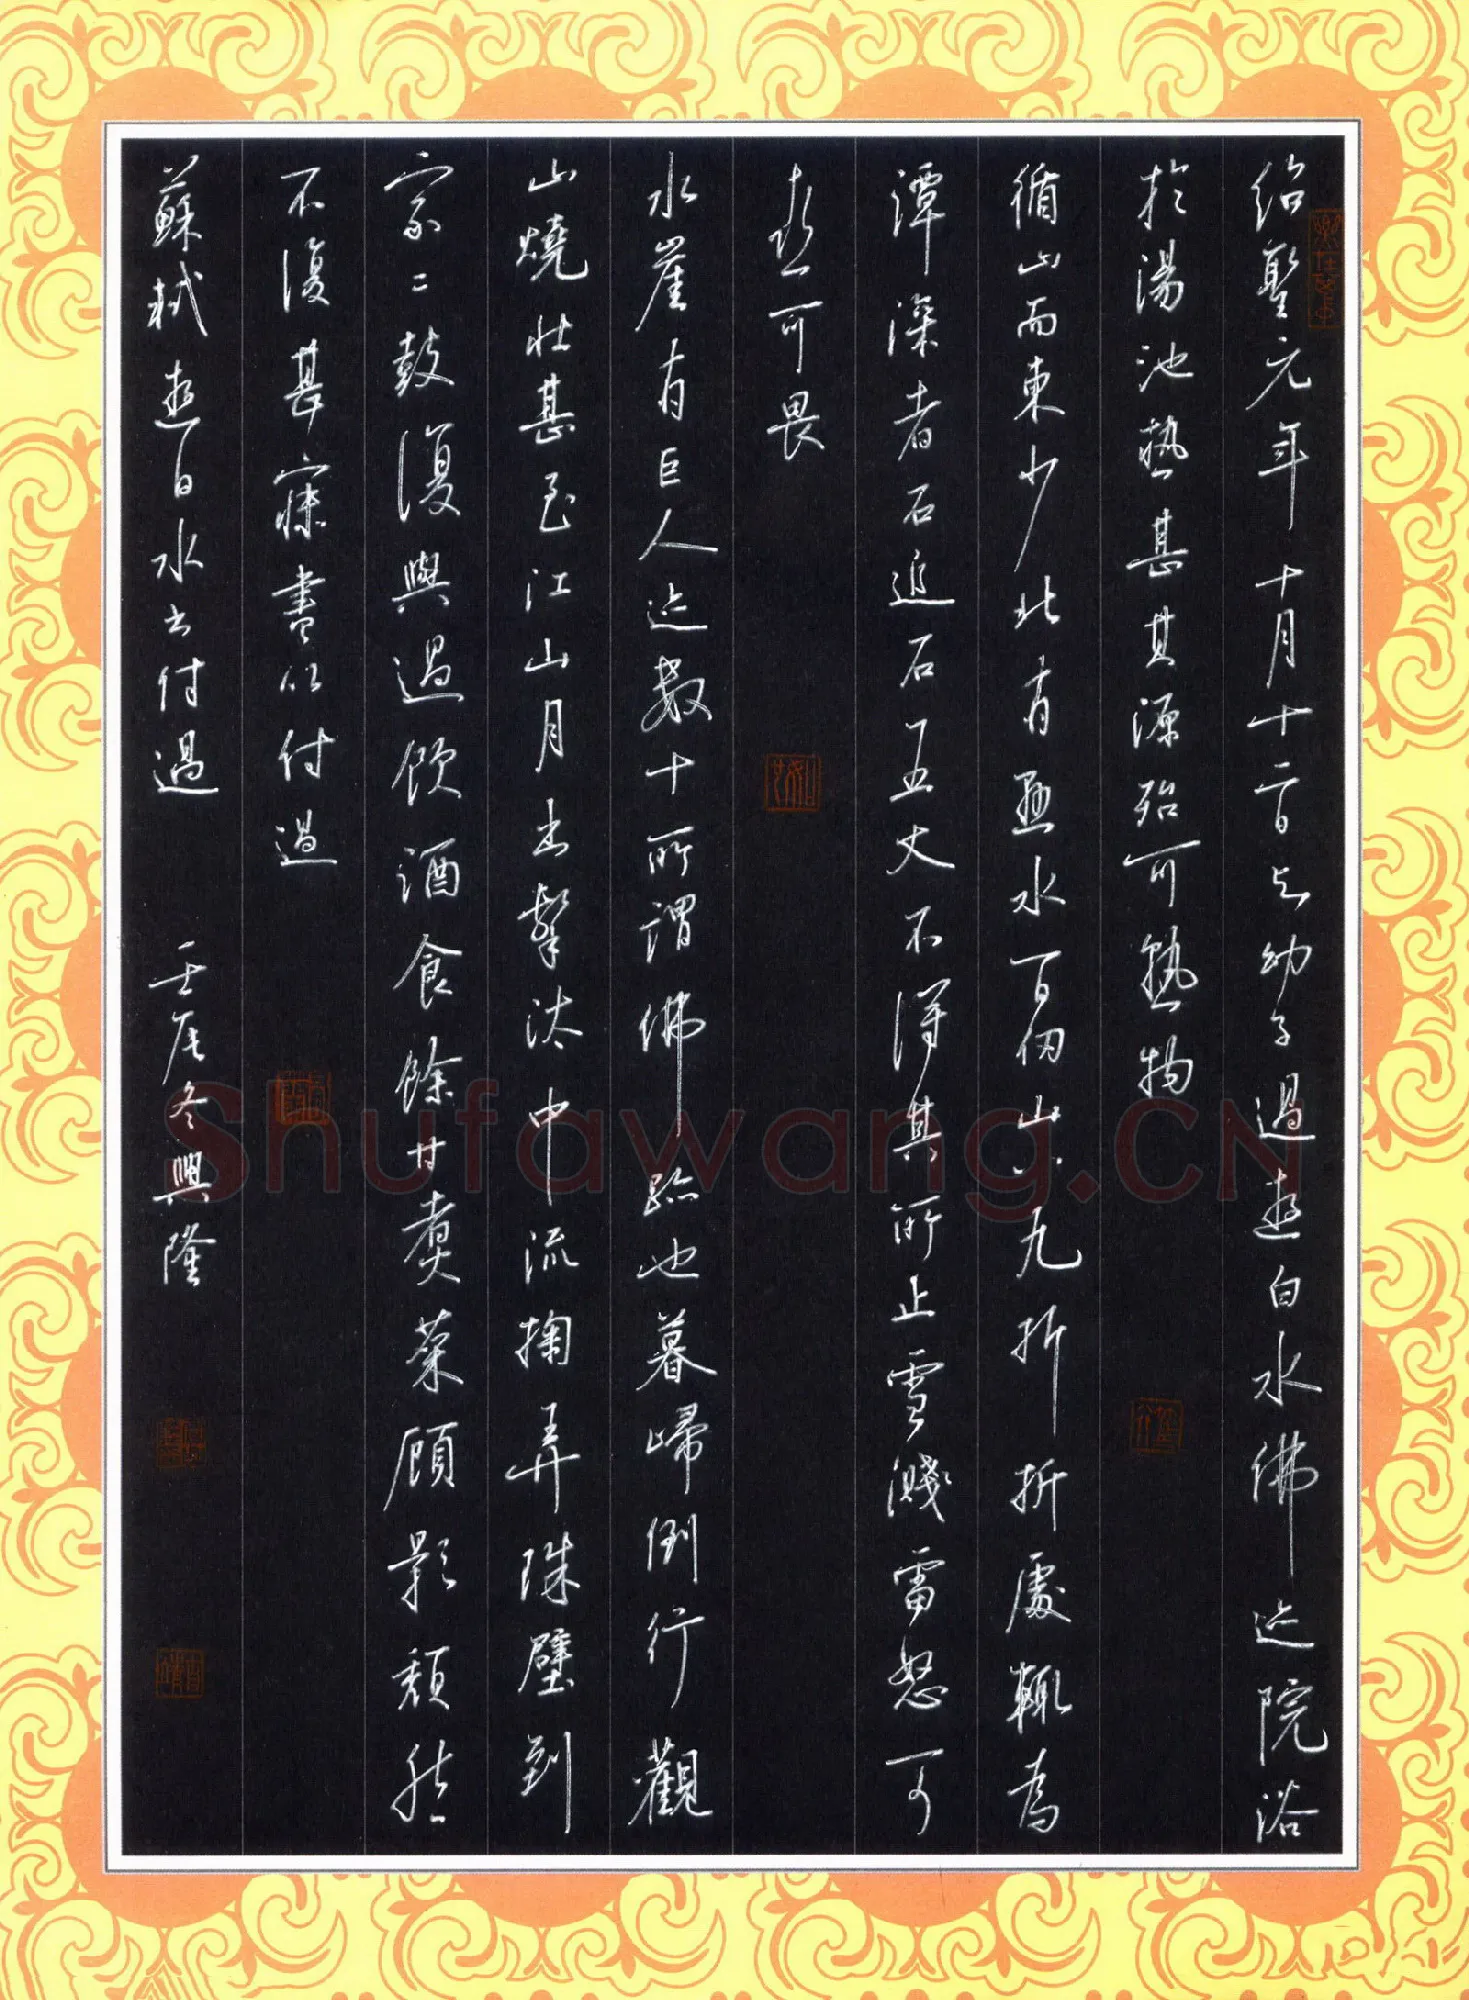 绍聖元年十月十二日与幼子過遊白水佛迹院浴
於湯池热甚其源殆可熟物
循山而東少北有懸水百仞山八九折折處輒為
潭深者石追石五丈不得其所止雪濺雷怒可
喜可畏
水崖有巨人迹數十所謂佛跡也暮歸倒行觀
山燒壮甚至江山月出擊汰中流掬弄珠璧到
家二鼓復與過飲酒食餘甘煮菜顧影頹然
不復甚寐書以付過
蘇軾遊白水书付過 壬辰冬興隆
Shufawang.CN